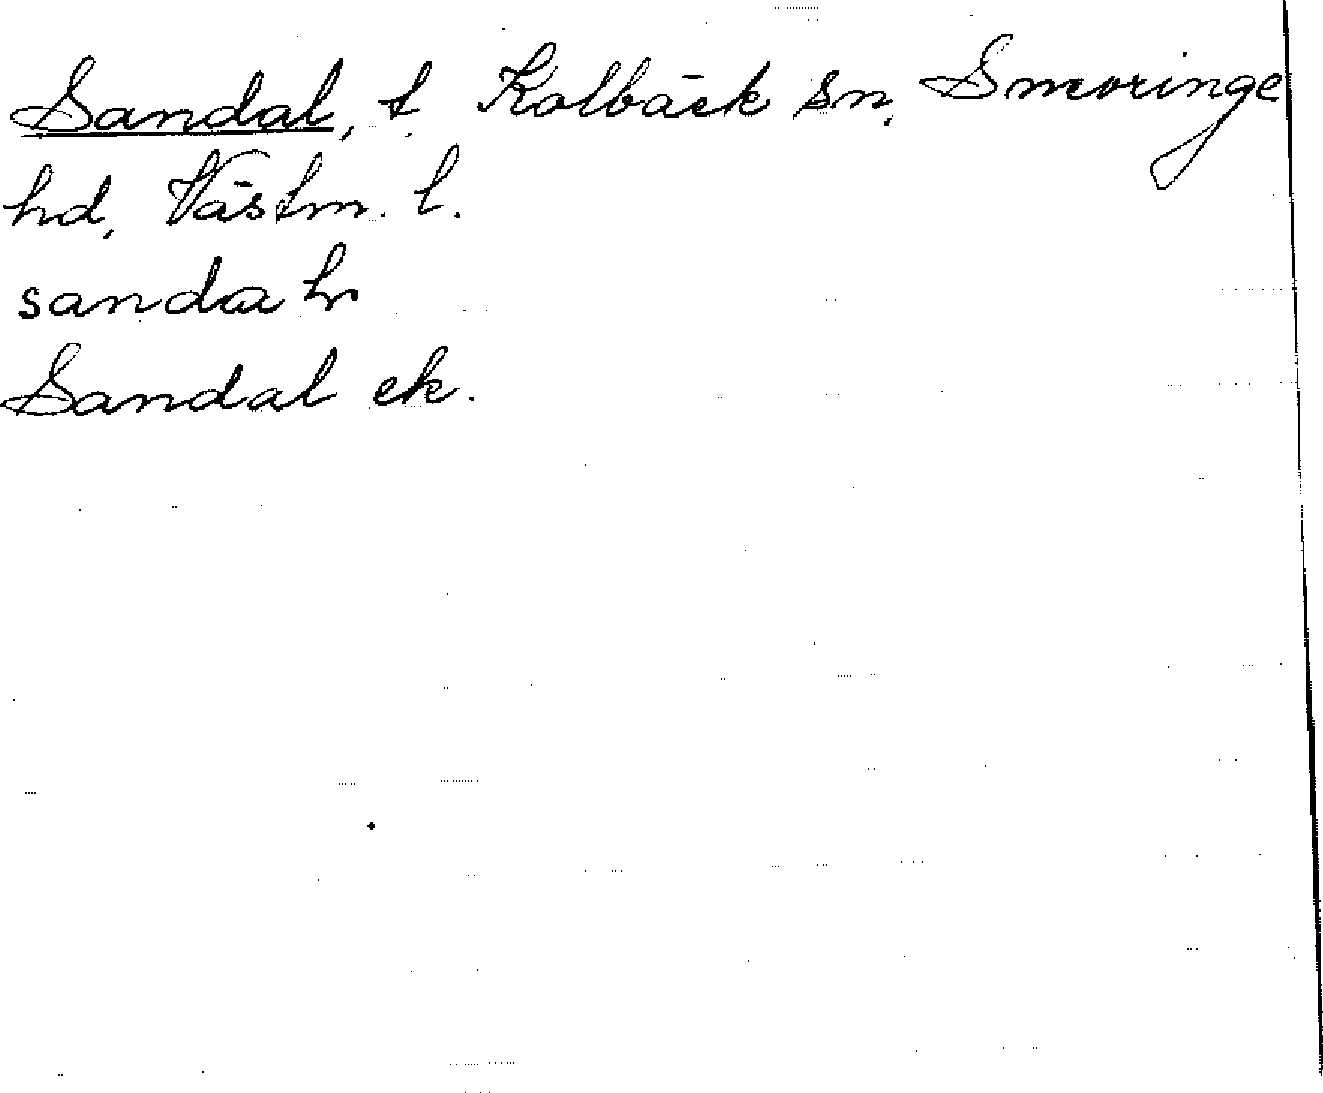 Sandal, t Kolbäck sn, Snevringe
hd, Västm. l.
Sandal ek.